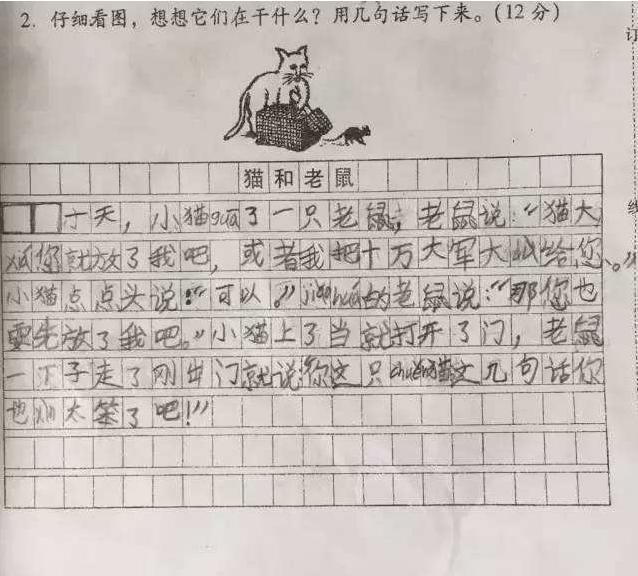 2. 仔细看图，想想它们在干什么？用几句话写下来。(12 分)
订
猫和老鼠
一天，小猫zhuā了一只老鼠，老鼠说：“猫大
您就放了我吧，或者我把十万大军大给您、。”
线
小猫点点头说：“可以。”jiǎo huá的老鼠说：“那您也
要先放了我吧。”小猫上了当就打开了门，老鼠
一下子走了刚出门就说：你这只chǔn猫这几句话你
也太笨了吧！”